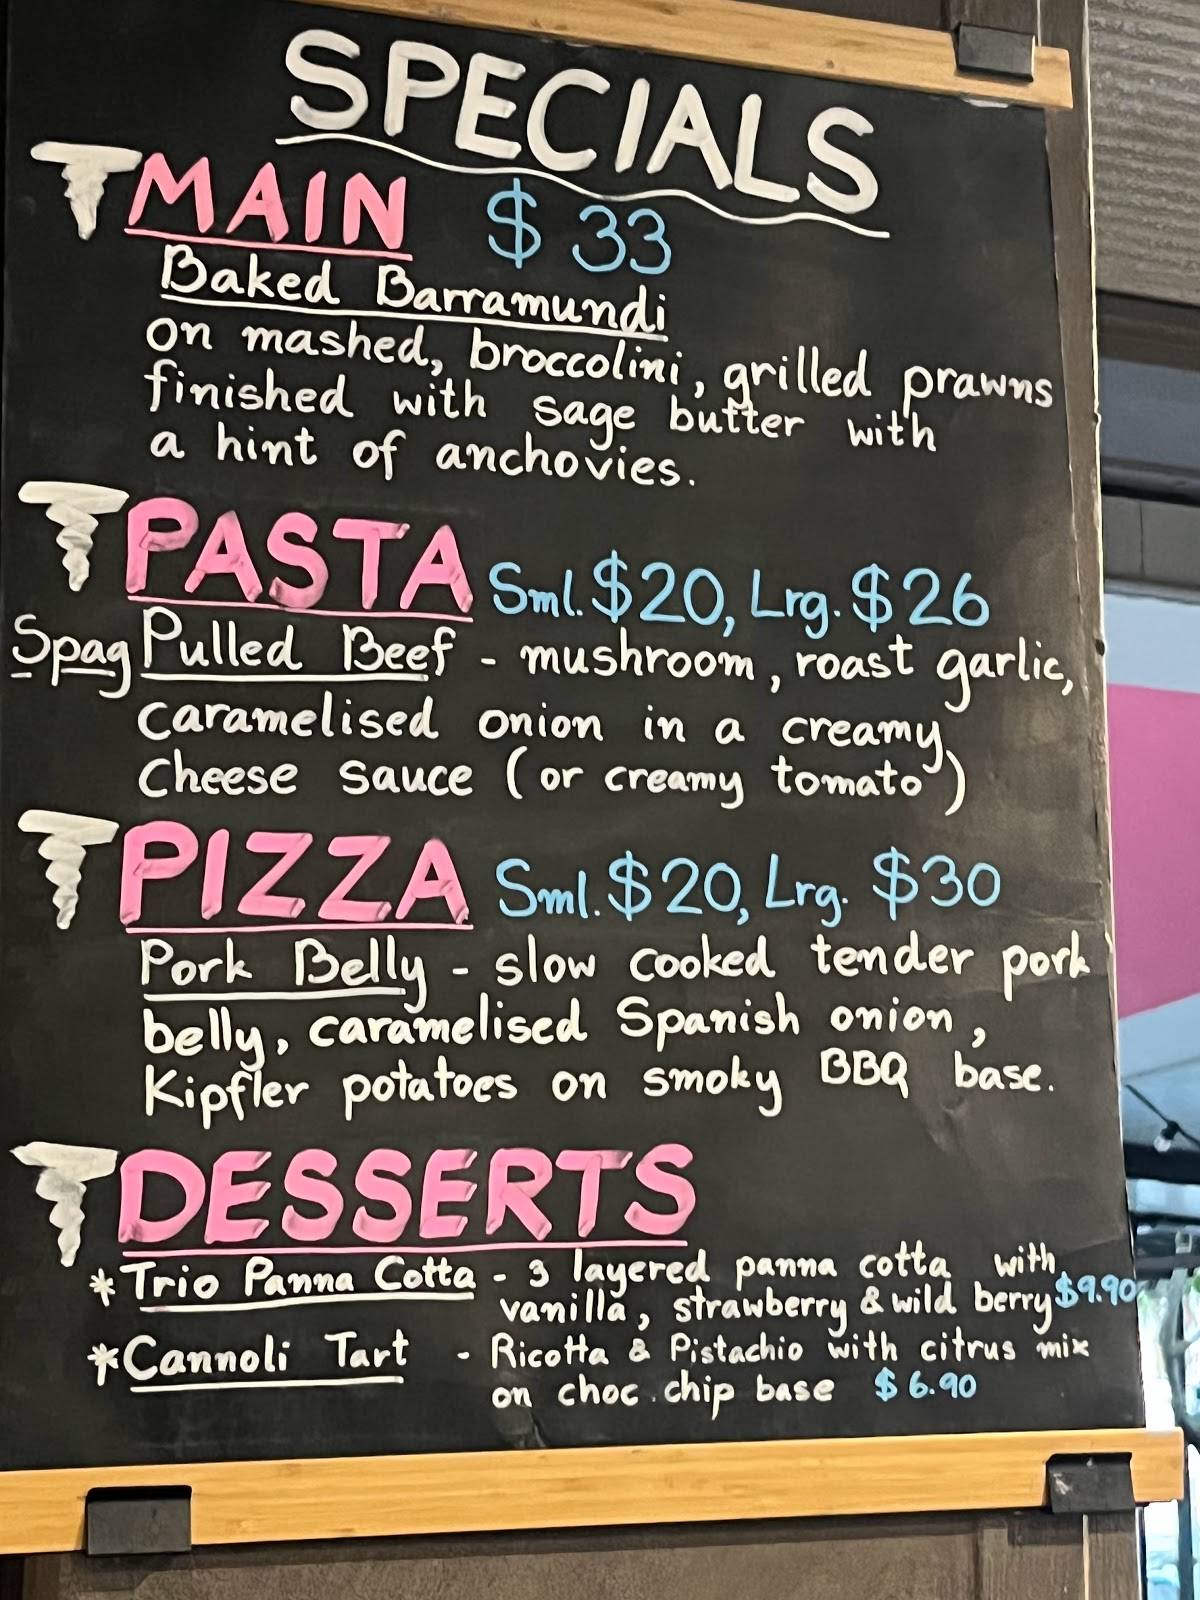 SPECIALS
MAIN $33
Baked Barramundi
on mashed, broccolini, grilled prawns
finished with sage butter with
a hint of anchovies.
PASTA Sml. $20, Lrg. $26
Spag Pulled Beef - mushroom, roast garlic,
caramelised onion in a creamy
cheese sauce (or creamy tomato)
PIZZA Sml. $20, Lrg. $30
Pork Belly - slow cooked tender pork
belly, caramelised Spanish onion,
Kipfler potatoes on smoky BBQ base.
DESSERTS
*Trio Panna Cotta - 3 layered panna cotta with
vanilla, strawberry & wild berry $9.90
*Cannoli Tart - Ricotta & Pistachio with citrus mix
on choc. chip base $6.90